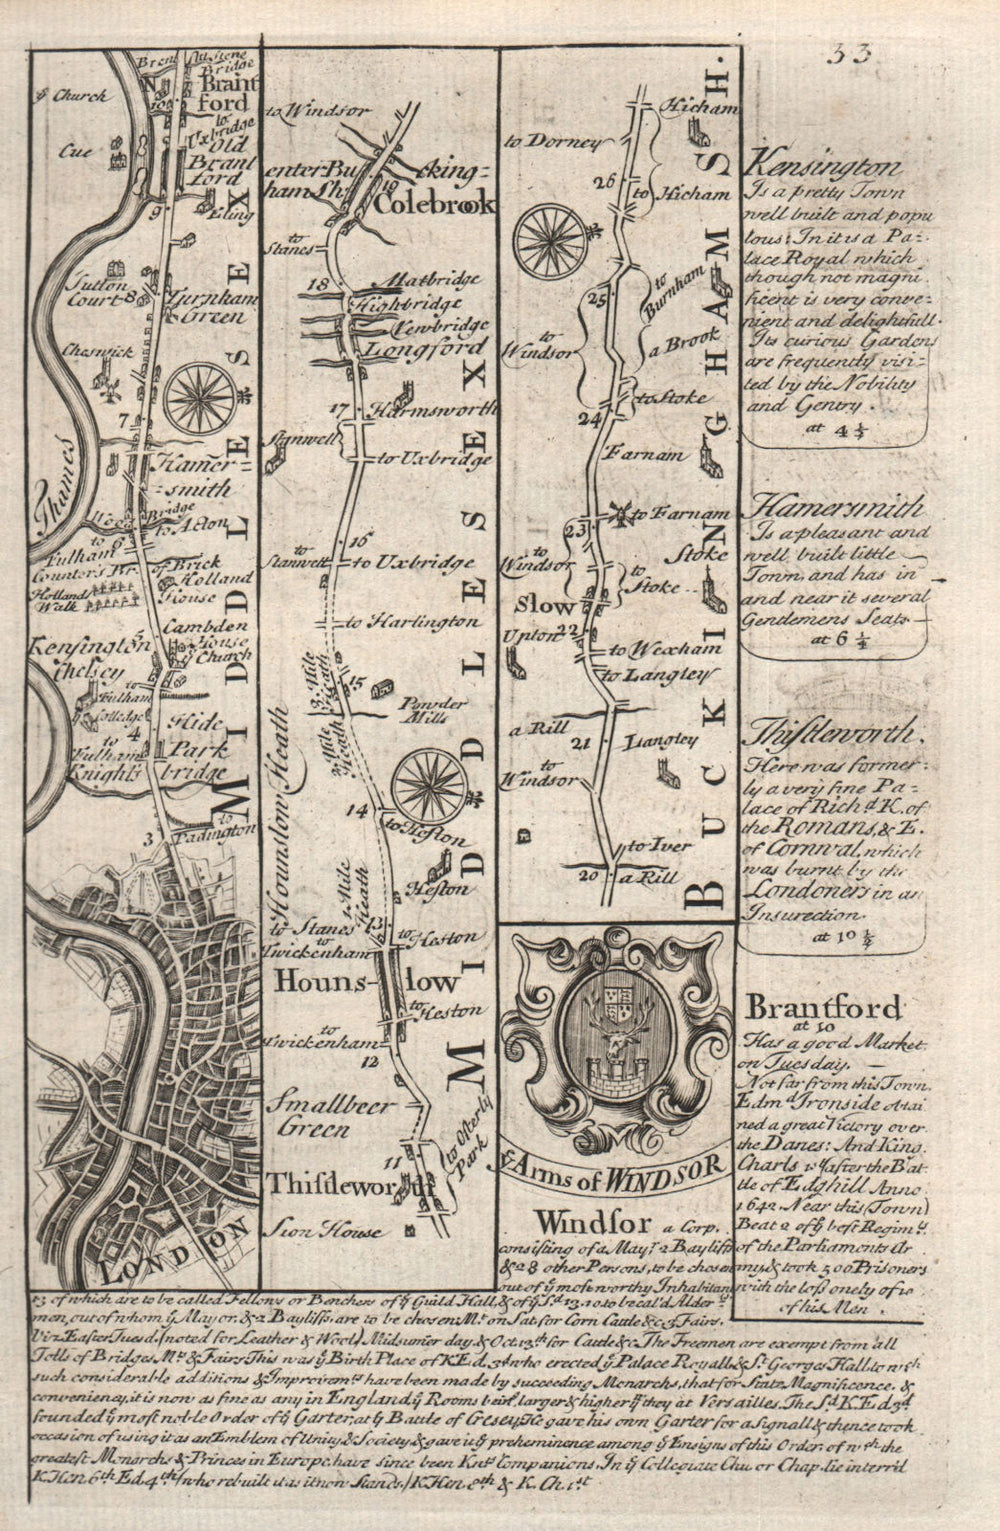 33
Brent
Bridge
N
Brant
ford
10
to
Uxbridge
Old
Brant
ford
ye Church
Cue
9
Eling
Sutton
Court
8
Turnham
Green
Cheswick
7
Thames
Hamer=
=smith
Bridge
to Acton
6
to
Fulham
Counter's Br.
Brick
Holland
House
Holland
Walk
Kensington
5
Cambden
House
ye Church
Chelsey
to
Fulham
Colledge
4
to
Fulham
Hide
Park
Knight's bridge
3
to
Padington
LONDON
MIDDLESEX
to Windsor
enter Bucking=
ham Sh.
19
Colebrook
to
Stanes
18
Matbridge
Highbridge
Newbridge
Longford
17
Harmsworth
Stanwell
to Uxbridge
16
to
Stanwell
to Uxbridge
to Harlington
3 Mile
Heath
15
Powder
Mills
2 Mile
Heath
Hounslow Heath
14
to Heston
1 Mile
Heath
Heston
to Stanes
13
to Heston
to
Twickenham
Hounslow
to
Heston
to
Twickenham
12
Smallbeer
Green
to Osterly
Park
11
Thistleworth
Sion House
MIDDLESEX
Hicham
to Dorney
26
to Hicham
to
Burnham
25
to
Windsor
a Brook
to Stoke
24
Farnam
to Farnam
23
to
Windsor
Stoke
to
Stoke
Slow
Upton
22
to Wexham
to Langley
a Rill
21
Langley
to
Windsor
to Iver
20
a Rill
BUCKINGHAMSH.
ye Arms of WINDSOR
Kensington
Is a pretty Town
well built and popu
lous: In it is a Pa=
lace Royal which
though not magni
ficent is very conve=
nient and delightfull.
Its curious Gardens
are frequently visi=
ted by the Nobility
and Gentry.
at 4½
Hamersmith
Is a pleasant and
well built little
Town, and has in
and near it several
Gendemens Seats
at 6 ¼
Thistleworth.
Here was former=
ly a very fine Pa=
lace of Richd. K. of
the Romans, & E.
of Cornwal, which
was burnt by the
Londoners in an
Insurection.
at 10 ¼
Brantford
at 10
Has a good Market
on Tuesday.
Not far from this Town,
Edmd. Ironside obtai
ned a great Victory over
the Danes: And King
Charls 1 ye after the Bat
tle of Edghill Anno
1642. Near this (Town)
Beat 2 of ye best Regimts.
of the Parliaments Ar
my, & took 500 Prisoners
with the loss onely of 10
of his Men.
Windsor a Corp.
consisting of a Mayr. 2 Bayliffs
& 28 other Persons, to be chosen
out of ye most worthy Inhabitants
13 of which are to be called Fellows or Benchers of ye Guild Hall, & of ye sd. 13. 10 to be cal'd Alder
men, out of whom ye Mayor, & 2 Bayliffs, are to be chosen. Mt. on Sat. for Corn Cattle &c. 3 Fairs.
Viz. Easter Tuesd. (noted for Leather & Wool) Midsumer day, & Oct. 13th for Cattle &c. The Freemen are exempt from all
Tolls of Bridges, Mts. & Fairs. This was ye Birth Place of K Ed. 3d. who erected ye Palace Royall, & St. Georges Hall, to wch
such considerable additions & Improvemts. have been made by succeeding Monarchs, that for State, Magnificence, &
conveniency, it is now as fine as any in England, ye Rooms being larger & higher yn they at Versailles. The Sd. K Ed 3d
founded ye most noble Order of ye Garter, at ye Batle of Cresey, He gave his own Garter for a Signall & thence took
occasion of using it as an Emblem of Unity & Society, & gave it ye preheminence among ye Ensigns of this Order. of wch the
greatest Monarchs & Princes in Europe, have since been Knts. Companions. In ye Collegiate Chu. or Chap. lie interr'd
K. Hen. 6th Ed. 4th (who rebuilt it as it now Stands.) K Hen. 8th & K. Ch. 1st